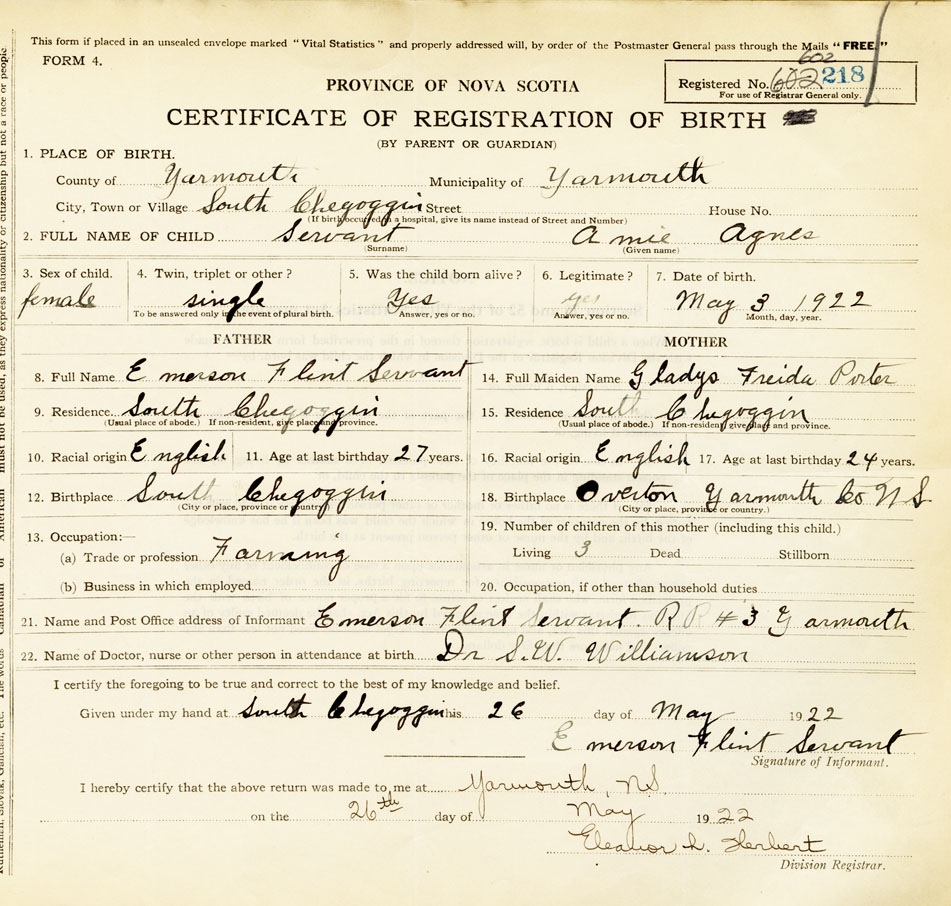 This form if placed in an unsealed envelope marked "Vital Statistics" and properly addressed will, by order of the Postmaster General pass through the Mails "FREE."
FORM 4.
602
Registered No. 602 218
For use of Registrar General only.
PROVINCE OF NOVA SCOTIA
CERTIFICATE OF REGISTRATION OF BIRTH
(BY PARENT OR GUARDIAN)
1. PLACE OF BIRTH.
County of Yarmouth Municipality of Yarmouth
City, Town or Village South Chegoggin Street House No.
(If birth occurred in a hospital, give its name instead of Street and Number)
2. FULL NAME OF CHILD Servant Amie Agnes
(Surname) (Given name)
3. Sex of child. 4. Twin, triplet or other? 5. Was the child born alive? 6. Legitimate? 7. Date of birth.
female single Yes yes May 3 1922
To be answered only in the event of plural birth. Answer, yes or no. Answer, yes or no. Month, day, year.
FATHER MOTHER
8. Full Name Emerson Flint Servant 14. Full Maiden Name Gladys Freida Porter
9. Residence South Chegoggin 15. Residence South Chegoggin
(Usual place of abode.) If non-resident, give place and province. (Usual place of abode.) If non-resident give place and province.
10. Racial origin English 11. Age at last birthday 27 years. 16. Racial origin English 17. Age at last birthday 24 years.
12. Birthplace South Chegoggin 18. Birthplace Overton Yarmouth Co N S
(City or place, province or country.) (City or place, province or country.)
13. Occupation:— 19. Number of children of this mother (including this child.)
(a) Trade or profession Farming Living 3 Dead Stillborn
(b) Business in which employed 20. Occupation, if other than household duties
21. Name and Post Office address of Informant Emerson Flint Servant. R R # 3 Yarmouth
22. Name of Doctor, nurse or other person in attendance at birth Dr S.W. Williamson
I certify the foregoing to be true and correct to the best of my knowledge and belief.
Given under my hand at South Chegoggin this 26 day of May 1922
Emerson Flint Servant
Signature of Informant.
I hereby certify that the above return was made to me at Yarmouth, N.S.
on the 26th day of May 1922
Eleanor L. Herbert
Division Registrar.